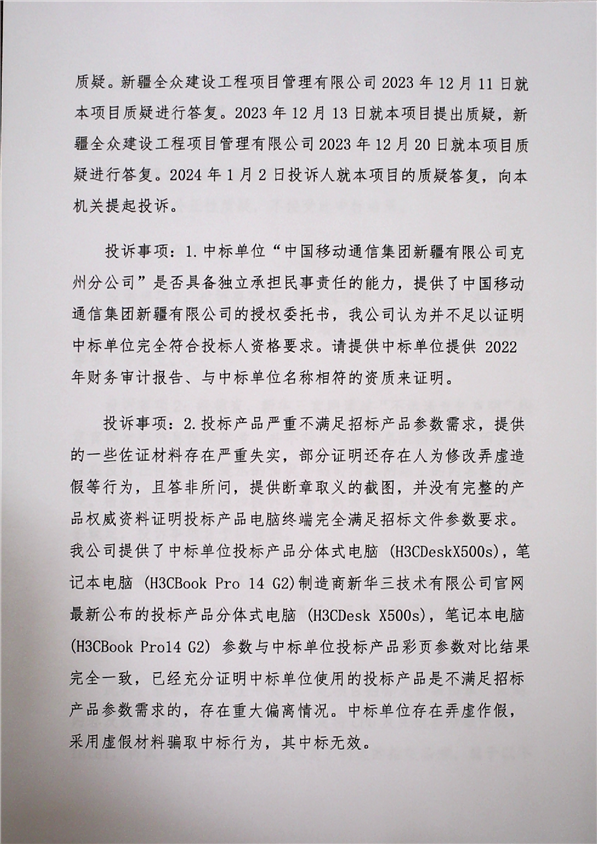 质疑。新疆全众建设工程项目管理有限公司2023年12月11日就
本项目质疑进行答复。2023年12月13日就本项目提出质疑，新
疆全众建设工程项目管理有限公司2023年12月20日就本项目质
疑进行答复。2024年1月2日投诉人就本项目的质疑答复，向本
机关提起投诉。
投诉事项：1.中标单位“中国移动通信集团新疆有限公司克
州分公司”是否具备独立承担民事责任的能力，提供了中国移动
通信集团新疆有限公司的授权委托书，我公司认为并不足以证明
中标单位完全符合投标人资格要求。请提供中标单位提供 2022
年财务审计报告、与中标单位名称相符的资质来证明。
投诉事项：2.投标产品严重不满足招标产品参数需求，提供
的一些佐证材料存在严重失实，部分证明还存在人为修改弄虚造
假等行为，且答非所问，提供断章取义的截图，并没有完整的产
品权威资料证明投标产品电脑终端完全满足招标文件参数要求。
我公司提供了中标单位投标产品分体式电脑 (H3CDeskX500s)，笔
记本电脑 (H3CBook Pro 14 G2)制造商新华三技术有限公司官网
最新公布的投标产品分体式电脑 (H3CDesk X500s)，笔记本电脑
(H3CBook Pro14 G2) 参数与中标单位投标产品彩页参数对比结果
完全一致，已经充分证明中标单位使用的投标产品是不满足招标
产品参数需求的，存在重大偏离情况。中标单位存在弄虚作假，
采用虚假材料骗取中标行为，其中标无效。